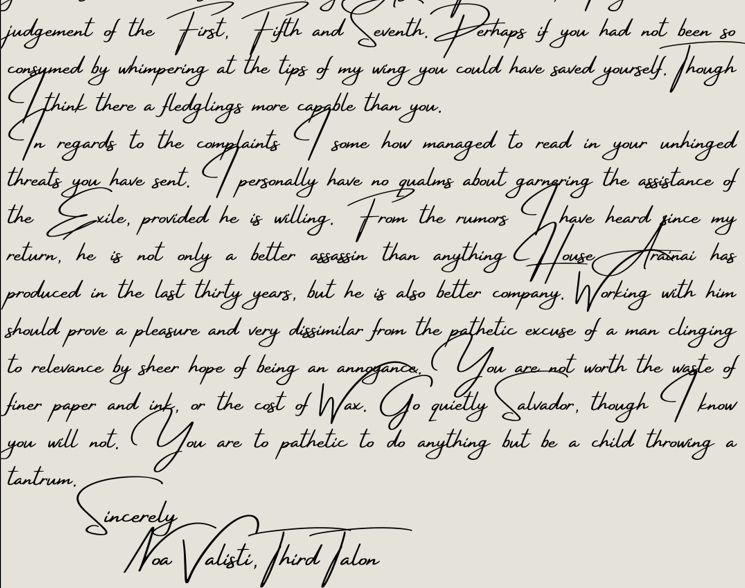 judgement of the First, Fifth and Seventh. Perhaps if you had not been so
consumed by whimpering at the tips of my wing you could have saved yourself. Though
I think there a fledglings more capable than you.
In regards to the complaints I some how managed to read in your unhinged
threats you have sent. I personally have no qualms about garnering the assistance of
the Exile, provided he is willing. From the rumors I have heard since my
return, he is not only a better assassin than anything House Arainai has
produced in the last thirty years, but he is also better company. Working with him
should prove a pleasure and very dissimilar from the pathetic excuse of a man clinging
to relevance by sheer hope of being an annoyance. You are not worth the waste of
finer paper and ink, or the cost of Wax. Go quietly Salvador, though I know
you will not. You are to pathetic to do anything but be a child throwing a
tantrum.
Sincerely
Noa Valisti, Third Talon